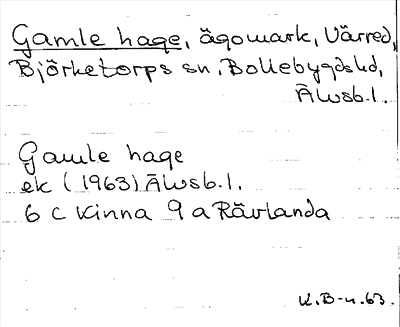 Gamle hage, ägomark, Värred,
Björketorps sn, Bollebygds hd,
Älvsb. l.
Gamle hage
ek (1963) Älvsb. l.
6 c Kinna 9 a Rävlanda
K. B-n. 63.